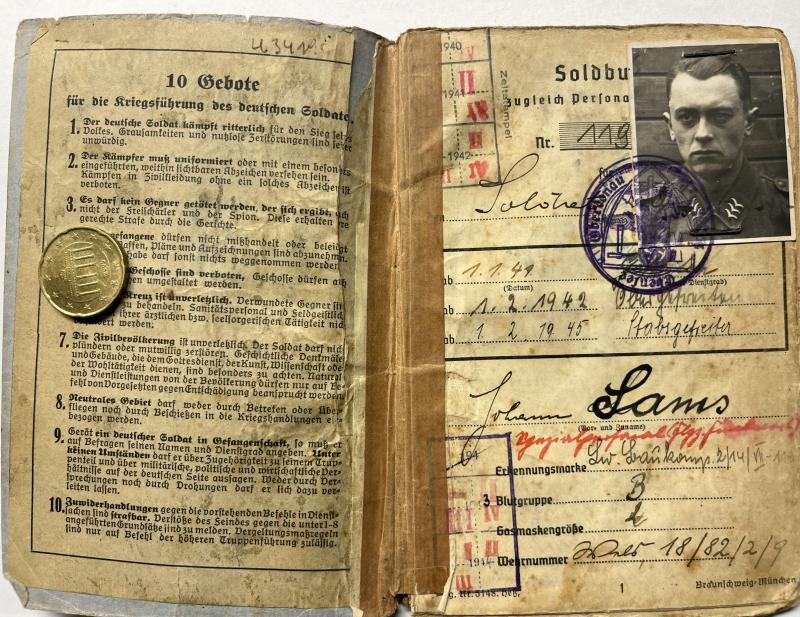 10 Gebote
für die Kriegsführung des deutschen Soldate
1. Der deutsche Soldat kämpft ritterlich für den Sieg
Volkes. Grausamkeiten und nutzlose Zerstörungen sind
unwürdig.
2. Der Kämpfer muß uniformiert oder mit einem besonders
eingeführten, weithin sichtbaren Abzeichen versehen sein.
Kämpfen in Zivilkleidung ohne ein solches Abzeichen ist
verboten.
3. Es darf kein Gegner getötet werden, der sich ergibt,
nicht der Freischärler und der Spion. Diese erhalten ihre
gerechte Strafe durch die Gerichte.
gefangene dürfen nicht mißhandelt oder beleidigt
affen, Pläne und Aufzeichnungen sind abzunehmen.
habe darf sonst nichts weggenommen werden
Geschosse sind verboten, Geschosse dürfen
umgestaltet werden.
Kreuz ist unverletzlich. Verwundete Gegner sind
zu behandeln. Sanitätspersonal und Feldgeistliche
ihrer ärztlichen bzw. seelsorgerischen Tätigkeit nicht
werden.
7. Die Zivilbevölkerung ist unverletzlich. Der Soldat darf nicht
plündern oder mutwillig zerstören. Geschichtliche Denkmäler
und Gebäude, die dem Gottesdienst, der Kunst, Wissenschaft oder
der Wohltätigkeit dienen, sind besonders zu achten. Natural-
und Dienstleistungen von der Bevölkerung dürfen nur auf Be-
fehl von Vorgesetzten gegen Entschädigung beansprucht werden.
8. Neutrales Gebiet darf weder durch Betreten oder Über-
fliegen noch durch Beschießen in die Kriegshandlungen ein-
bezogen werden.
9. Gerät ein deutscher Soldat in Gefangenschaft, so muß er
auf Befragen seinen Namen und Dienstgrad angeben. Unter
keinen Umständen darf er über Zugehörigkeit zu seinem Trup-
penteil und über militärische, politische und wirtschaftliche Ver-
hältnisse auf der deutschen Seite aussagen. Weder durch Ver-
sprechungen noch durch Drohungen darf er sich dazu ver-
leiten lassen.
10. Zuwiderhandlungen gegen die vorstehenden Befehle in Dienst-
sachen sind strafbar. Verstöße des Feindes gegen die unter 1-8
angeführten Grundsätze sind zu melden. Vergeltungsmaßregeln
sind nur auf Befehl der höheren Truppenführung zulässig.
1940
II
1941
IV
II
1942
IV
Zeitstempel
Soldbu
zugleich Persona
Nr. 119
für
ab 1.1.41
(Datum) (Dienstgrad)
ab 1.2.1942 Obergefreiten
ab 1 2. 1945 Stabsgefreiter
Johann Sams
(Vor- und Zuname)
Erkennungsmarke Lw. Baukomp. 2/14/VII
3 Blutgruppe B
Gasmaskengröße 2
Wehrnummer Wels 18/82/2/9
1
Braunschweig-München